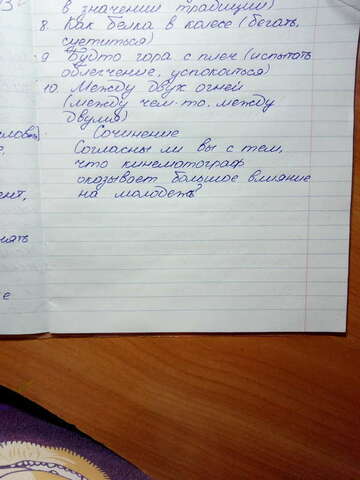 в значении традиции)
8. Как белка в колесе (бегать,
суетиться)
9 Будто гора с плеч (испытать
облегчение, успокоиться)
10. Между двух огней
(между чем-то. между
двумя)
Сочинение
Согласны ли вы с тем,
что кинемотограф
оказывает большое влияние
на молодежь?